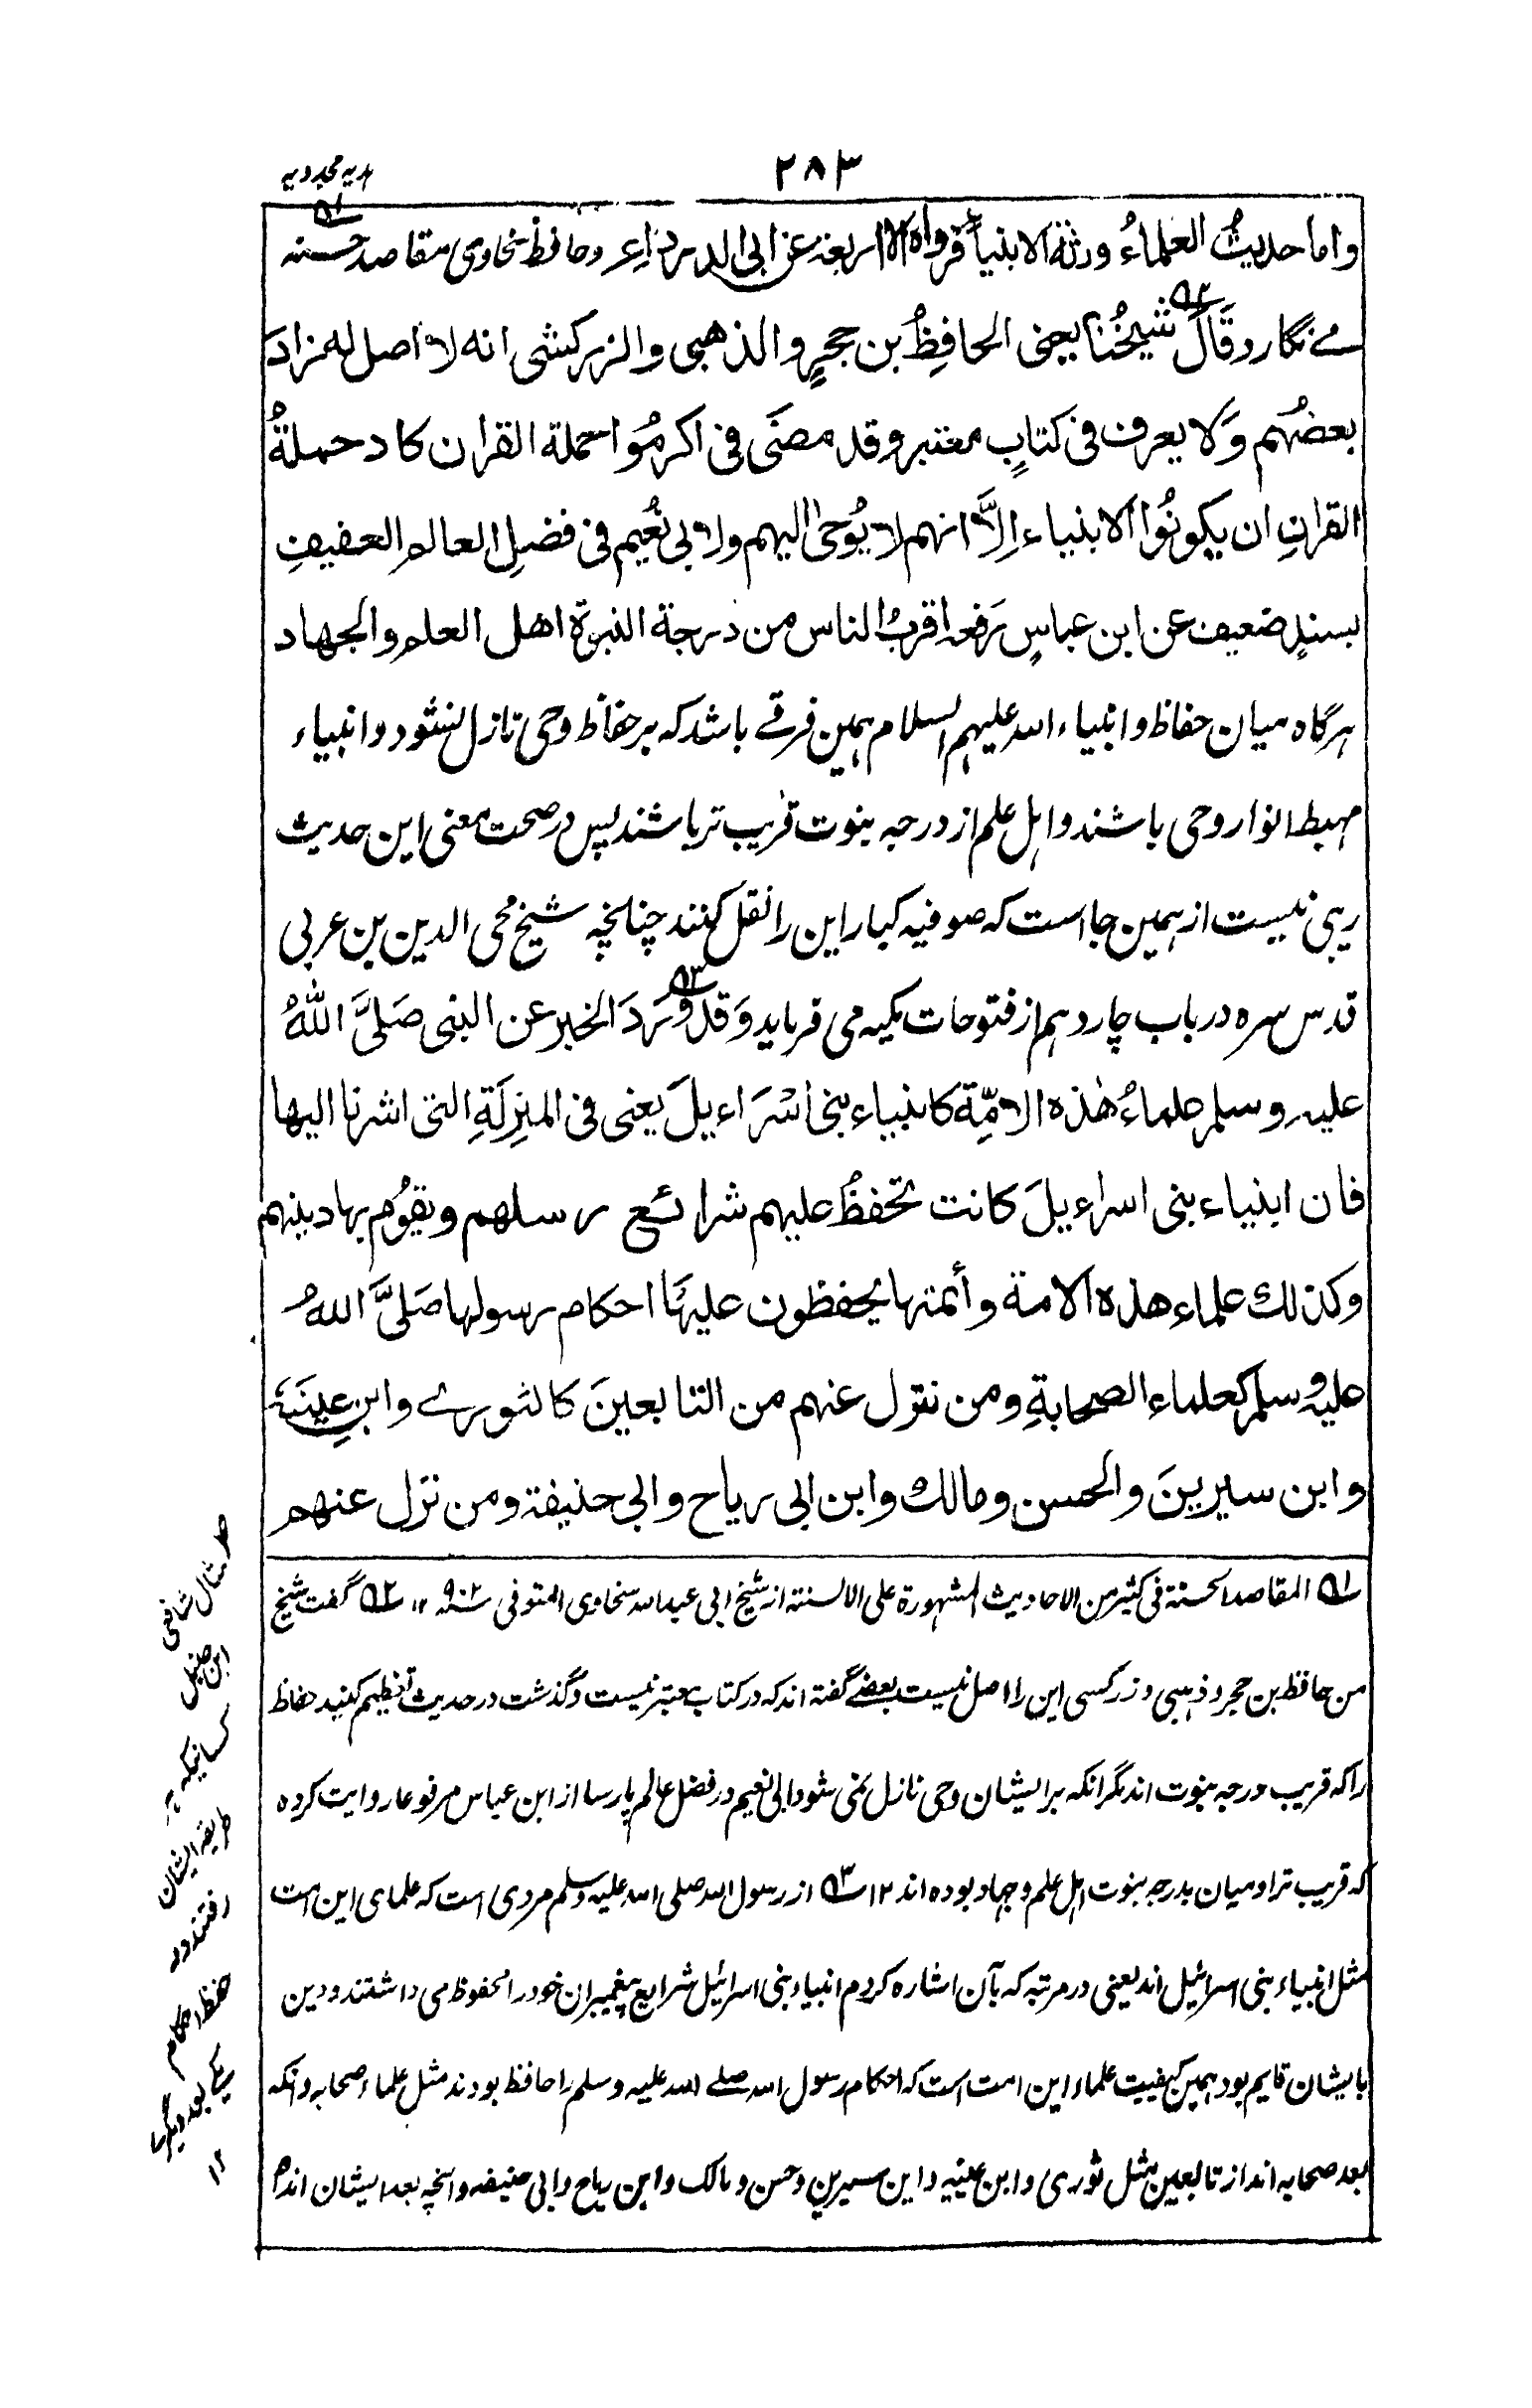 ۲۸۳
ہدیہ مجددیہ
واما حدیثُ العلماءُ ورثة الانبیاءِ فرواه الاربعة عن ابی الدرداء و حافظ سخاوی مقاصد حسنہ
مے نگارد قَالَ شیخُنا یعنی الحافِظُ بن حجرٍ والذهبی والزرکشی انه لا اصل له زادَ
بعضُهم وَلا یعرف فی کتابٍ معتبر وقد مضَی فی اکرمُوا حملة القران کاد حملةُ
القرانِ ان یکونُوا الانبیاء اِلَّا انهم لا یُوحیٰ الیهم ولابی نُعیم فی فضلِ العالم العفیفِ
بسندٍ ضعیف عن ابن عباسٍ رَفعه اقربُ الناس من درجة النبوة اهل العلم والجهاد
ہرگاہ میان حفاظ و انبیاء اللہ علیہم السلام ہمین فرقے باشد کہ بر حفاظ وحی نازل نشود و انبیاء
مہبط انوار وحی باشند و اہل علم از درجہ نبوت قریب تر باشند پس در صحت معنی این حدیث
ریبی نیست از ہمین جا است کہ صوفیہ کبار این را نقل کنند چنانچہ شیخ محی الدین بن عربی
قدس سره در باب چاردہم از فتوحات مکیہ می فرماید وَقد وَرَدَ الخبر عن النبی صَلَّی اللهُ
علیہ وسلم علماءُ هٰذه الامّة کانبیاء بنی اسْرَاءیلَ یعنی فی المنزِلَةِ التی اشرنا الیها
فان انبیاء بنی اسراءیلَ کانت تحفظُ علیهم شرائع رسلهم ویقوُم بها دینهم
وکذلك علماء هذه الامة وأئمتها یحفظون علیهَا احکام رسولها صَلَّی اللهُ
علیه وسلم کعلماء الصحابةِ ومن نزل عنهم من التابعینَ کالثورے وابن عیینَة
وابن سیرینَ والحسن ومالك وابن ابی ریاح وابی حنیفة ومن نزل عنهم
۱ه المقاصد الحسنة فی کثیر من الاحادیث المشهورة علی الالسنة از شیخ ابی عبداللہ سخاوی المتوفی ۹۰۲ سنہ ۱۲ ۲ه گفت شیخ
من حافظ بن حجر و ذہبی و زرکسی این را اصل نیست بعضے گفتہ اند کہ در کتاب معتبر نیست و گذشت در حدیث تعظیم کنید حفاظ
را کہ قریب درجہ نبوت اند مگر انکہ بر ایشان وحی نازل نمی شود ابی نعیم در فضل عالم پارسا از ابن عباس مرفوعا روایت کرده
کہ قریب تر اومیان بدرجہ نبوت اہل علم و جہاد بوده اند ۱۲ ۳ه از رسول اللہ صلی اللہ علیہ وسلم مروی است کہ علمای این امت
مثل انبیاء بنی اسرائیل اند یعنی در مرتبہ کہ بآن اشاره کردم انبیاء بنی اسرائیل شرایع پیغمبران خود را محفوظ می داشتند و دین
بایشان قایم بود ہمین کیفیت علماء این امت است کہ احکام رسول اللہ صلے اللہ علیہ وسلم را حافظ بودند مثل علماء صحابہ وانکہ
بعد صحابہ اند از تابعین مثل ثوری وابن عیینہ وابن سیرین وحسن ومالک وابن ریاح وابی حنیفہ وانچہ بعد ایشان اند
مثال شافعی
ابن حنبل
کسانیکہ بر
طریقہ ایشان
رفتند در
حفظ احکام
یکے بعد دیگرے
۱۲